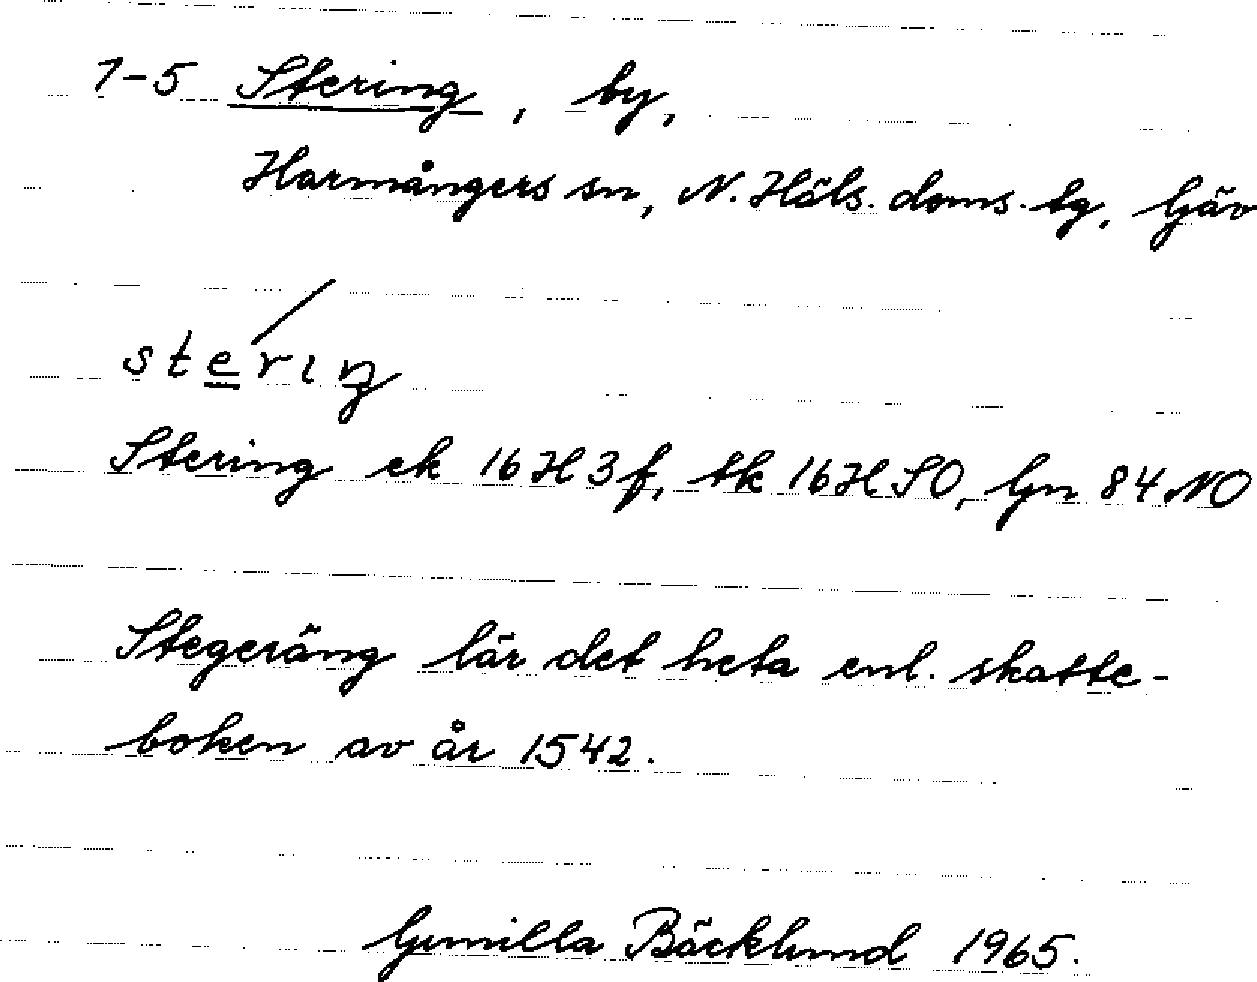 1-5 Stering, by,
Harmångers sn, N. Häls. doms. tg, Gäv
stęŕıŋ
Stering ek 16H3f, tk 16HSO, Gn 84NO
Stegeräng lär det heta enl. skatte-
boken av år 1542.
Gunilla Bäcklund 1965.